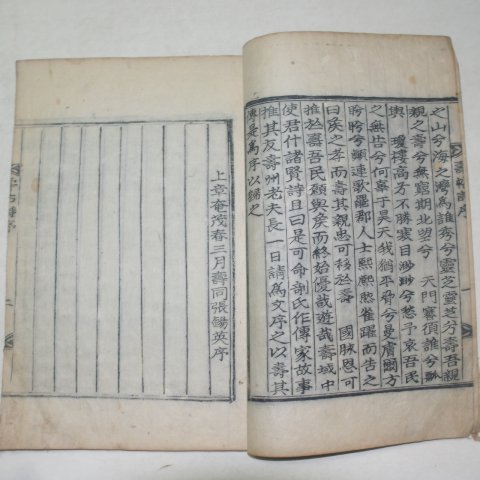 之山兮海之灣爲誰秀兮靈芝靈芝兮壽吾親
親之壽兮無窮期北望兮 天門褰須誰兮瓢
輿 瓊樓高矛不勝寒目渺渺兮愁予哀吾民
之無告兮何辜于昊天我猶平脊兮曼膚爾方
盻盻兮顚連歌罷郡人士熙熙然雀躍而告之
曰侯之孝而壽其親忠可移於壽 國脉恩可
推於壽吾民願與侯而終始優哉遊哉壽域中
使君什諸賢詩且曰是可命剞氏作傳家故事
推其友壽州老夫長一日請爲文序之以壽其
傳是爲序以歸之
上章奄茂春三月壽同張錫英序